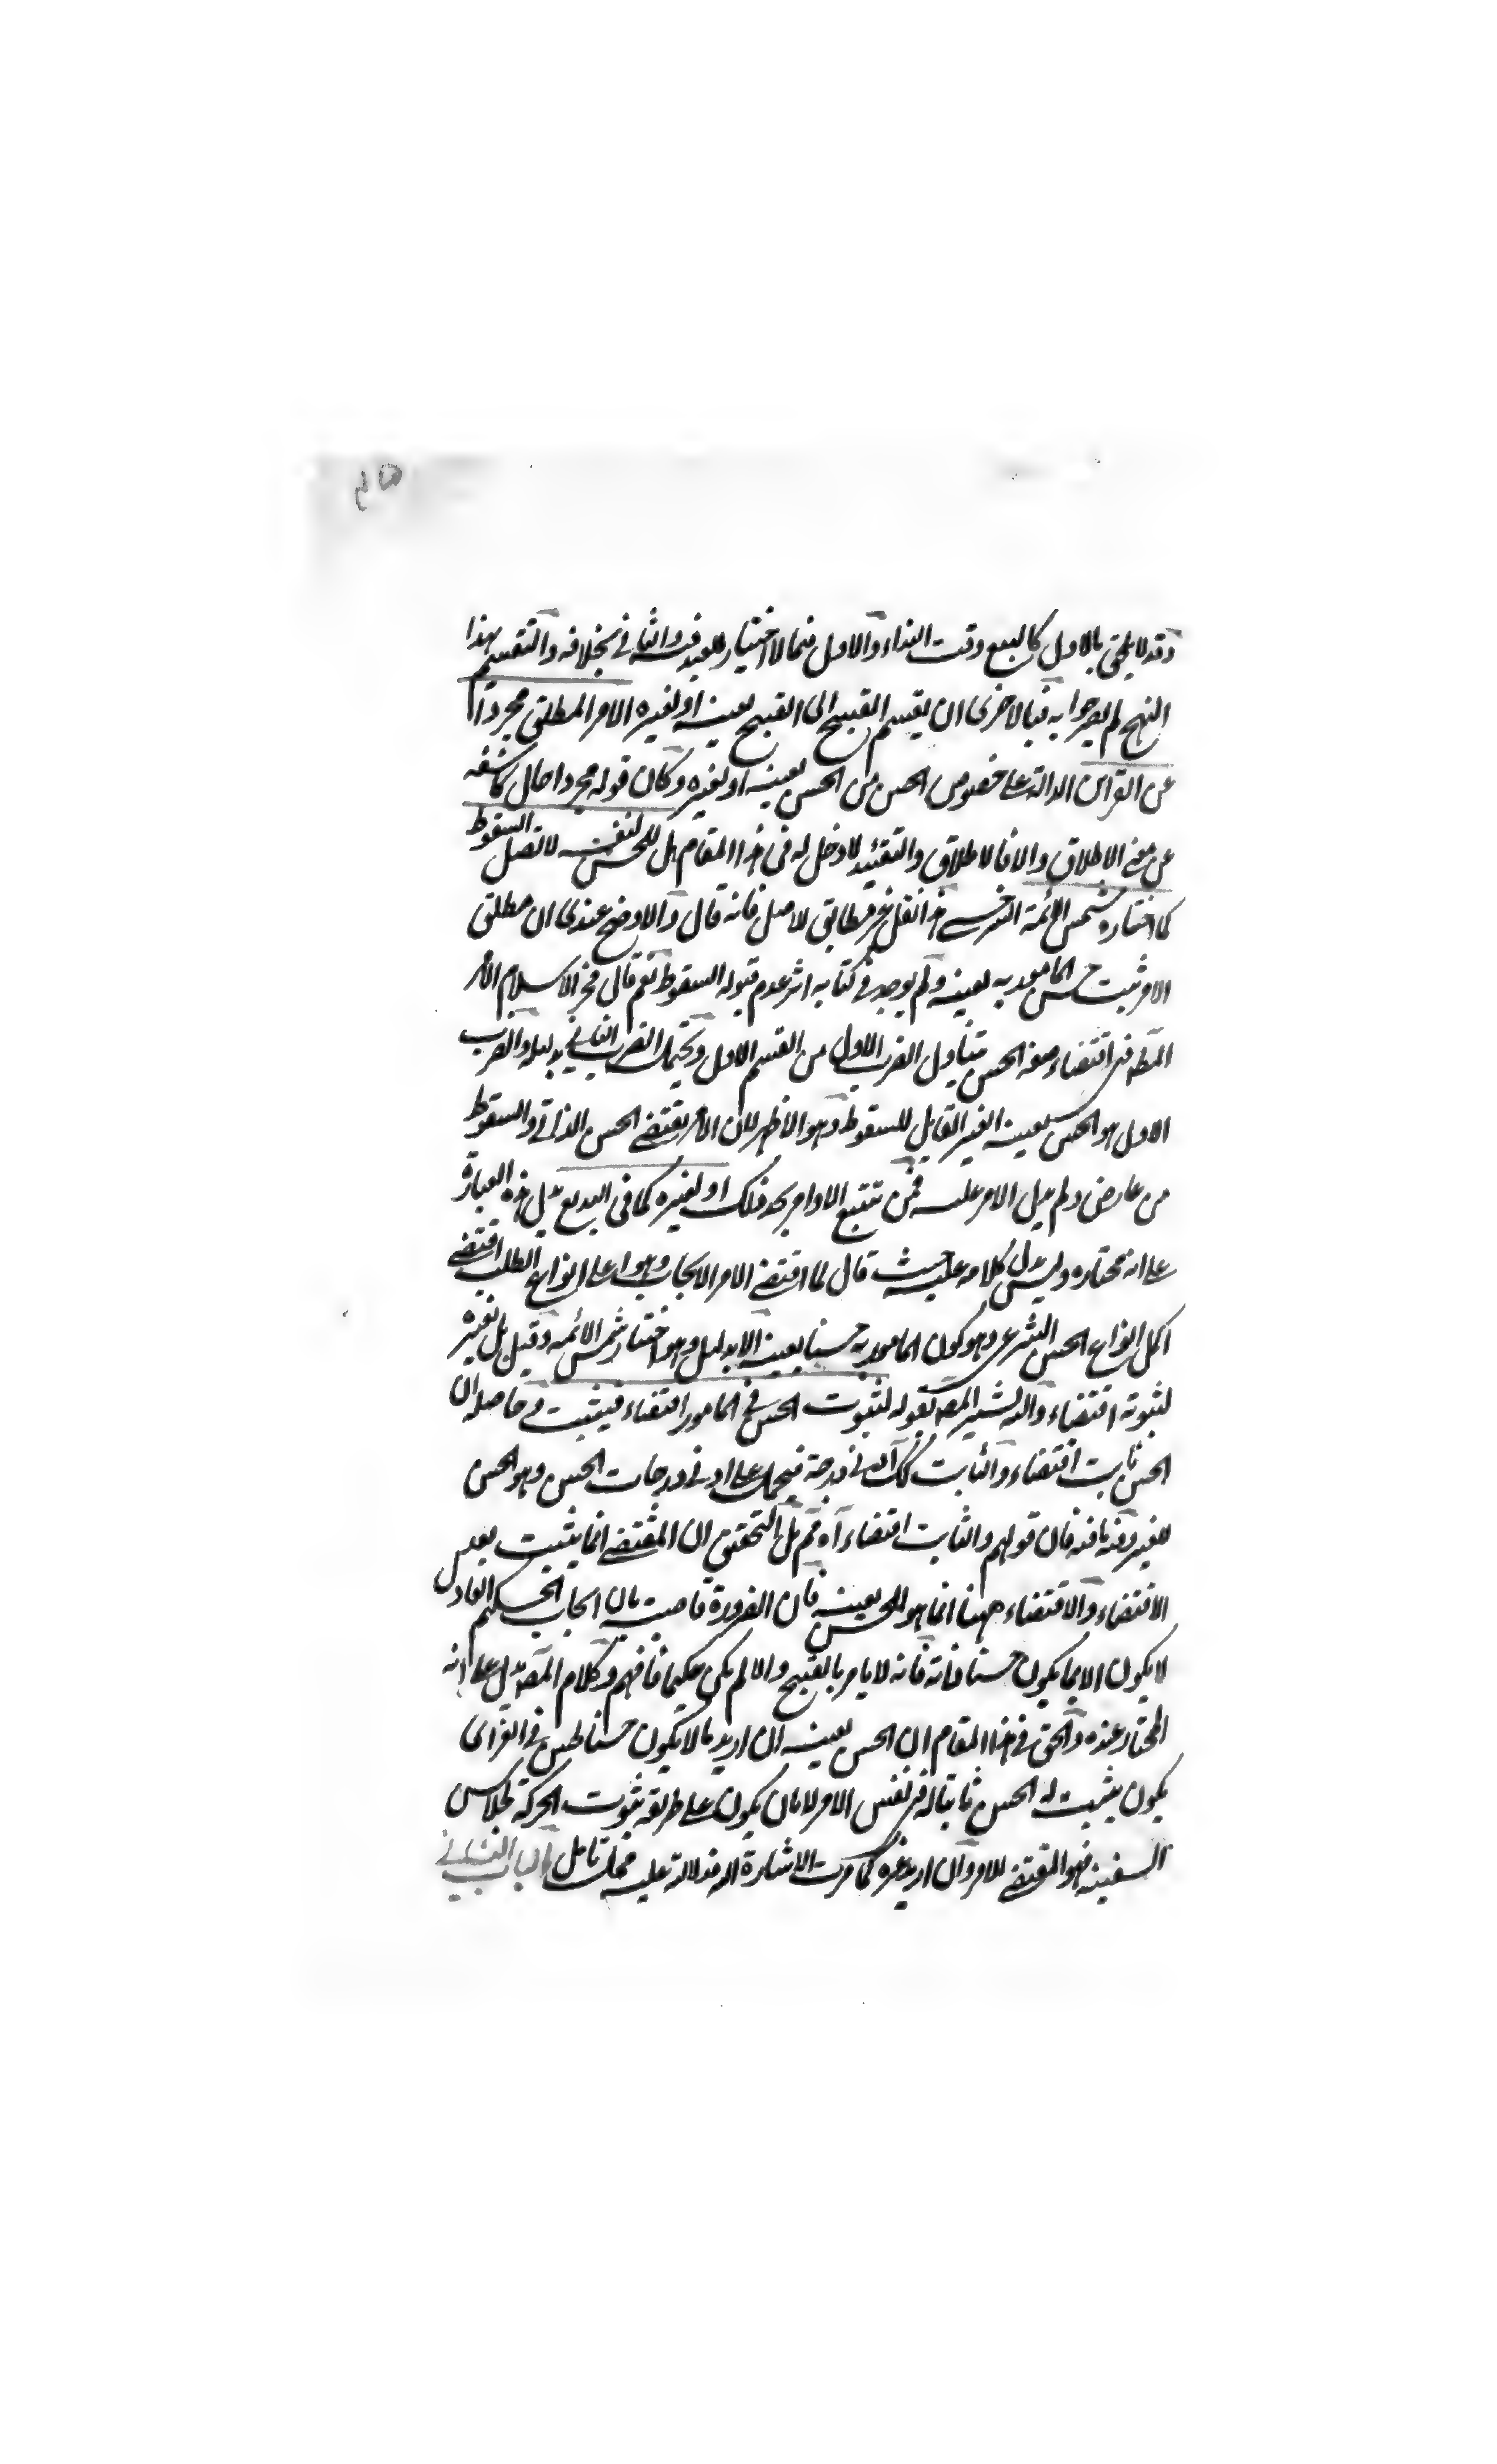 وقد لا يلحق بالاول كالبيع وقت النداء والاول فيما لا اختيار للعبد فيه والثاني بخلافه والتقسيم بهذا
النهج لم يصرحوا به فبالاخرى ان يقسم القبيح الى القبيح لعينه او لغيره الامر المطلق مجردا
عن القرائن الدالة على خصوص الحسن من الحسن لعينه او لغيره وكان قوله مجردا حال كاشفه
عن معنى الاطلاق والا فالاطلاق والتقئيد لا دخل له في هذا المقام هل للحسن لنفسه لا تصل السقوط
كما اختاره شمس الائمة السرخسي هذا نقل غير مطابق لاصل فانه قال والاوضح عندي ان مطلق
الامر يثبت حسن المامور به لعينه ولم يوجد في كتابه اثر عدم قبوله السقوط نعم قال فخر الاسلام الامر
المطه في اقتضاء صفة الحسن يتناول الضرب الاول من القسم الاول ويحتمل الضرب الثاني بدليله والضرب
الاول هو الحسن لعينه الغير القابل للسقوط وهو الاظهر لان الامر يقتضي الحسن الذاتي والسقوط
من عارض ولم يدل الامر عليه فمن تتبع الاوامر يجد ذلك او لغيره كما في البديع يدل هذه العبارة
على انه مختاره وليس يدل كلامه عليه حيث قال لما اقتضى الامر الايجاب وهو اعلى انواع الطلب اقتضى
اكمل انواع الحسن الشرعي وهو كون المامور به حسنا لعينه الا بدليل وهو اختيار شمس الائمه وقيل بل لغيره
لثبوته اقتضاء واليه يشير المصه بقوله لثبوت الحسن في المامور اقتضاء فيثبت في حاصله ان
الحسن ثابت اقتضاء والثابت كك ادنى درجة فيحمل على ادنى درجات الحسن وهو الحسن
لغيره وفيه ما فيه فان قولهم والثابت اقتضاء آه فم بل التحقيق ان المقتضى انما يثبت بعين
الاقتضاء والاقتضاء ههنا انما هو للحسن لعينه فان الضرورة قاضيت بان ايجاب الحكيم العادل
لا يكون الا بما يكون حسنا فانه فانه لا يامر بالقبيح والا لم يكن حكيما فافهم وكلام المصه يدل على انه
المختار عنده والحق في هذا المقام ان الحسن لعينه ان اريد ما لا يكون حسنا لحسن في الغير اى
يكون يثبت له الحسن ثابتا له في نفس الامر لا بان يكون على طريقه ثبوت الحركة لجلاس
السفينة فهو المقتضى للامر وان اريد غيره كما مرت الاشارة اليه فدلالة عليه محل تامل الباب الثاني